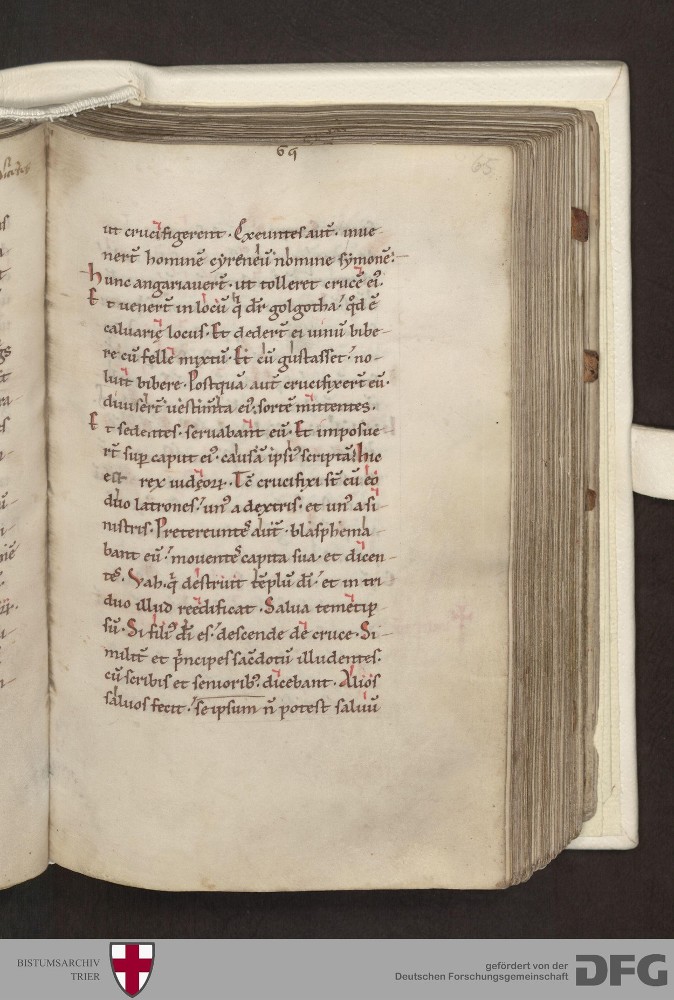 69
65
ut crucifigerent. Exeuntes aut̄. inue-
nert̄ hominē cyreneū nomine symonē.
hunc angariauert̄. ut tolleret crucē ei᾿.
Et venert̄ in locū q̄ dr̄ golgotha. qd̄ ē
caluarię locus. Et dedert̄ ei uinū bibe-
re cū felle mixtū. Et cū gustasset. no-
luit bibere. Postquā aut̄ crucifixert̄ eū.
diuisert̄ uestim̄ta ei᾿. sortē mittentes.
Et sedentes. seruabant eū. Et imposue-
rt̄ sup̱ caput ei᾿. causā ipsi᾿ scriptā. hic
est rex iudęoꝝ. Tc̄ crucifixi st̄ cū eo
duo latrones. un᾿ a dextris. et un᾿ a si-
nistris. Pretereuntes aut̄. blasphema-
bant eū. mouentes capita sua. et dicen-
tes. Vah. q̄ destruit tēplū dī. et in tri-
duo illud reędificat. Salua temetip-
sū. Si fili᾿ dī es. descende de cruce. Si-
milit̄ et p̄ncipes sac̄dotū illudentes.
cū scribis et seniorib᾿. dicebant. Alios
saluos fecit. se ipsum n̄ potest saluū
BISTUMSARCHIV
TRIER
gefördert von der
Deutschen Forschungsgemeinschaft
DFG